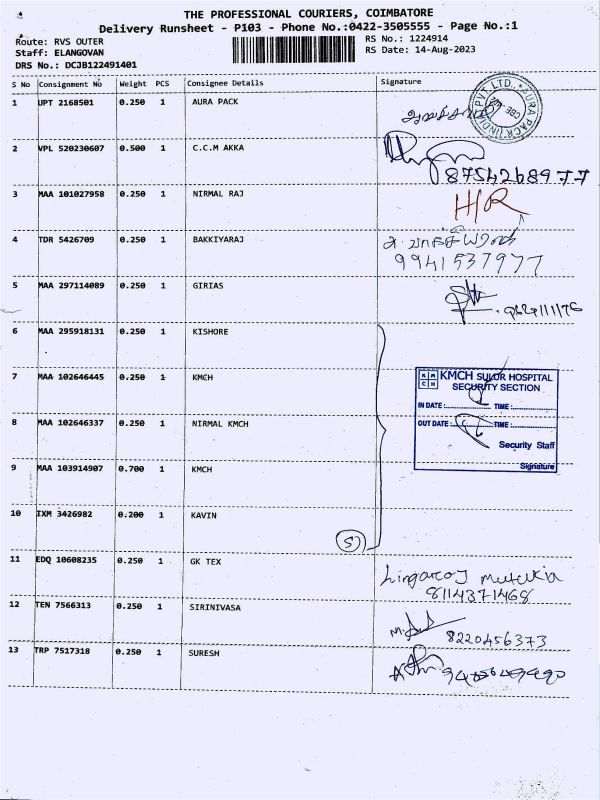 THE PROFESSIONAL COURIERS, COIMBATORE
Delivery Runsheet - P103 - Phone No.:0422-3505555 - Page No.:1
Route: RVS OUTER
RS No.: 1224914
Staff: ELANGOVAN
RS Date: 14-Aug-2023
DRS No.: DCJB122491401
S No Consignment No Weight PCS Consignee Details Signature
1 UPT 2168501 0.250 1 AURA PACK
AURA PACK (INDIA) PVT LTD. CBE
2 VPL 520230607 0.500 1 C.C.M AKKA
8754268977
3 MAA 101027958 0.250 1 NIRMAL RAJ
H/R
4 TDR 5426709 0.250 1 BAKKIYARAJ
9941537977
5 MAA 297114089 0.250 1 GIRIAS
6 MAA 295918131 0.250 1 KISHORE
7 MAA 102646445 0.250 1 KMCH
KMCH SULUR HOSPITAL
SECURITY SECTION
IN DATE : TIME :
OUT DATE : TIME :
Security Staff
Signature
8 MAA 102646337 0.250 1 NIRMAL KMCH
9 MAA 103914907 0.700 1 KMCH
10 IXM 3426982 0.200 1 KAVIN
5
11 EDQ 10608235 0.250 1 GK TEX
8114371468
12 TEN 7566313 0.250 1 SIRINIVASA
8220456373
13 TRP 7517318 0.250 1 SURESH